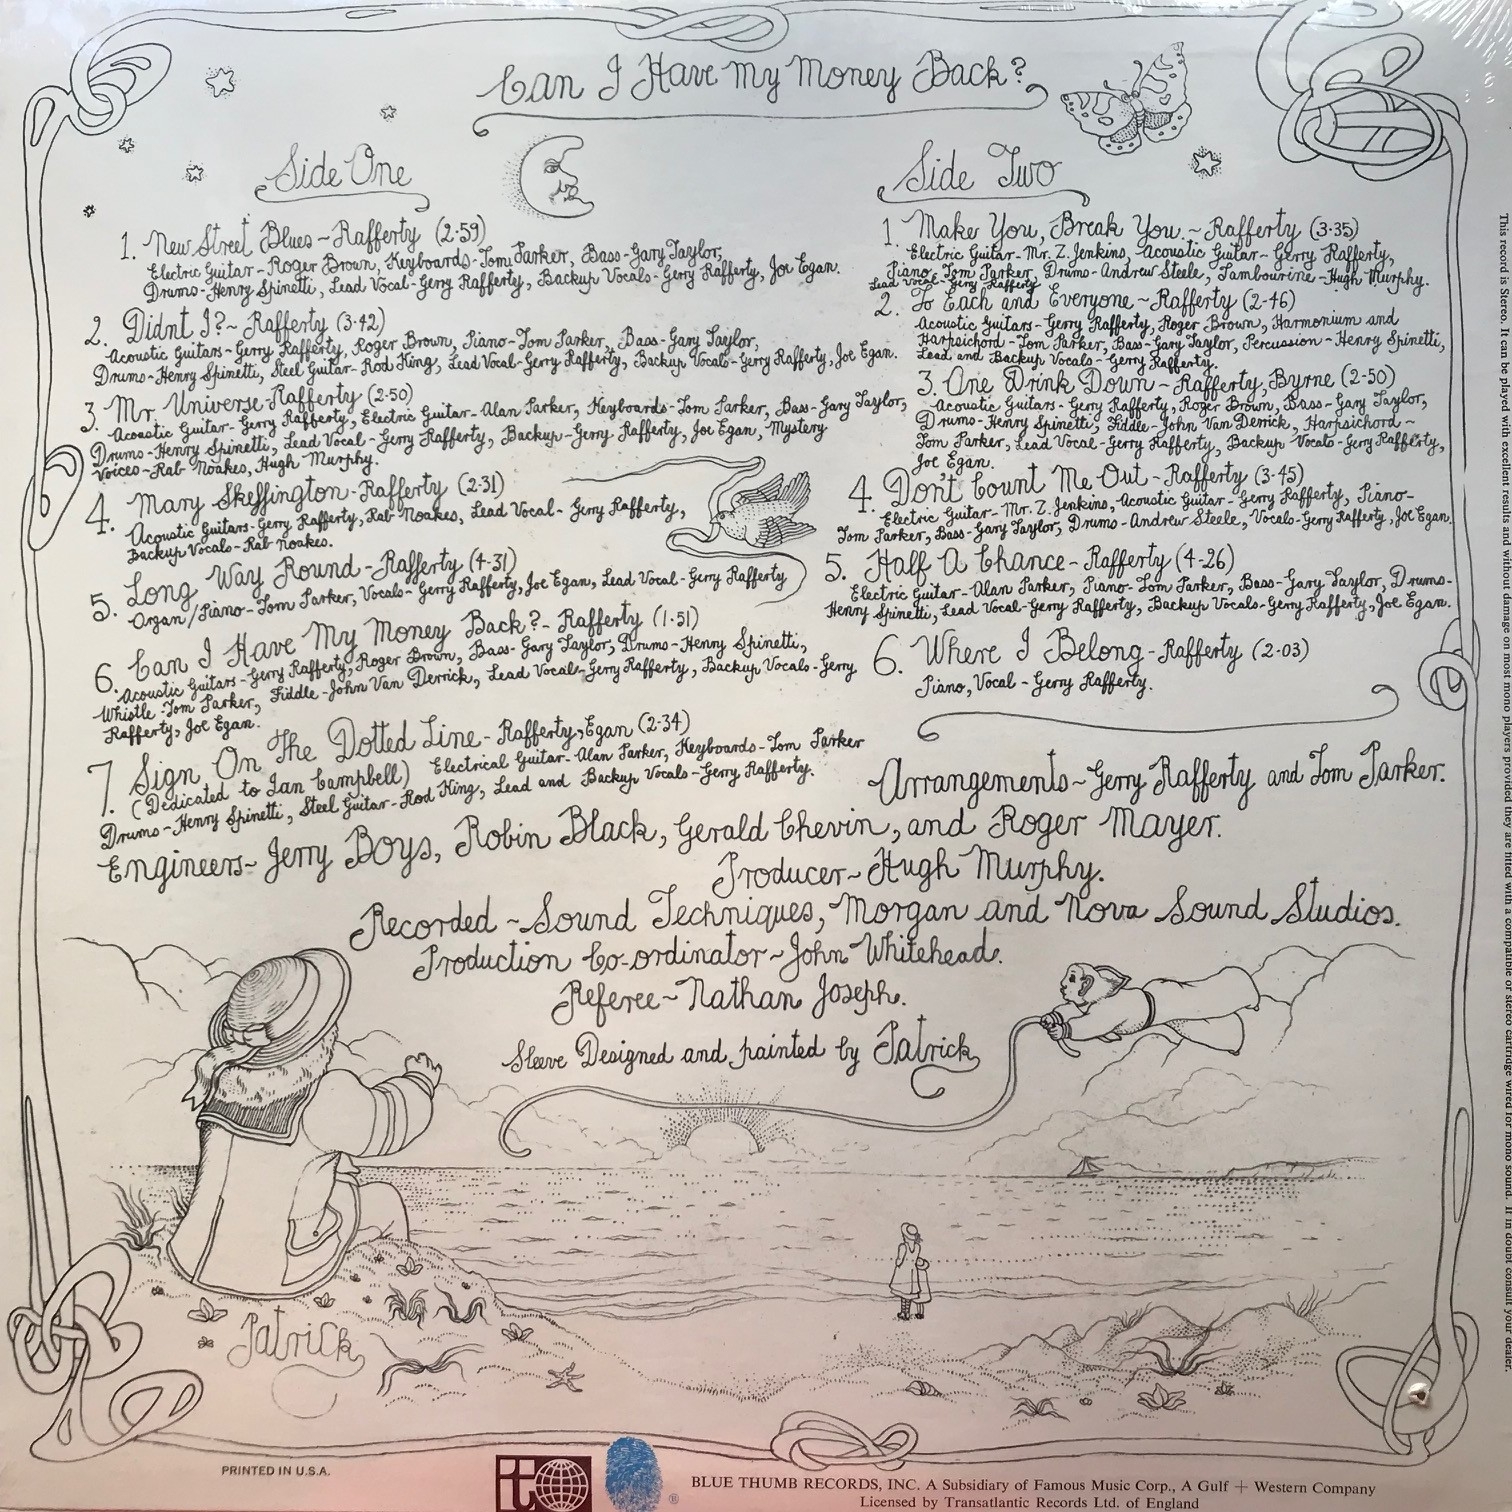 Can I Have My Money Back?
Side One
1. New Street Blues~Rafferty (2·59)
Electric Guitar-Roger Brown, Keyboards-Tom Parker, Bass-Gary Taylor,
Drums-Henry Spinetti, Lead Vocal-Gerry Rafferty, Backup Vocals-Gerry Rafferty, Joe Egan.
2. Didnt I?~Rafferty (3·42)
Acoustic Guitars-Gerry Rafferty, Roger Brown, Piano-Tom Parker, Bass-Gary Taylor,
Drums-Henry Spinetti, Steel Guitar-Rod King, Lead Vocal-Gerry Rafferty, Backup Vocals-Gerry Rafferty, Joe Egan.
3. Mr. Universe-Rafferty (2·50)
Acoustic Guitar-Gerry Rafferty, Electric Guitar-Alan Parker, Keyboards-Tom Parker, Bass-Gary Taylor,
Drums-Henry Spinetti, Lead Vocal-Gerry Rafferty, Backup-Gerry Rafferty, Joe Egan, Mystery
Voices-Rab Noakes, Hugh Murphy.
4. Mary Skeffington-Rafferty (2·31)
Acoustic Guitars-Gerry Rafferty, Rab Noakes, Lead Vocal-Gerry Rafferty,
Backup Vocals-Rab Noakes.
5. Long Way Round-Rafferty (4·31)
Organ/Piano-Tom Parker, Vocals-Gerry Rafferty, Joe Egan, Lead Vocal-Gerry Rafferty
6. Can I Have My Money Back?-Rafferty (1·51)
Acoustic Guitars-Gerry Rafferty, Roger Brown, Bass-Gary Taylor, Drums-Henry Spinetti,
Whistle-Tom Parker, Fiddle-John Van Derrick, Lead Vocals-Gerry Rafferty, Backup Vocals-Gerry
Rafferty, Joe Egan.
7. Sign On The Dotted Line-Rafferty, Egan (2·34)
(Dedicated to Ian Campbell) Electrical Guitar-Alan Parker, Keyboards-Tom Parker
Drums-Henry Spinetti, Steel Guitar-Rod King, Lead and Backup Vocals-Gerry Rafferty.
Side Two
1. Make You, Break You.~Rafferty (3·35)
Electric Guitar-Mr. Z. Jenkins, Acoustic Guitar-Gerry Rafferty,
Piano-Tom Parker, Drums-Andrew Steele, Tambourine-Hugh Murphy.
Lead Vocal-Gerry Rafferty
2. To Each and Everyone~Rafferty (2·46)
Acoustic Guitars-Gerry Rafferty, Roger Brown, Harmonium and
Harpsichord-Tom Parker, Bass-Gary Taylor, Percussion-Henry Spinetti,
Lead and Backup Vocals-Gerry Rafferty.
3. One Drink Down~Rafferty, Byrne (2·50)
Acoustic Guitars-Gerry Rafferty, Roger Brown, Bass-Gary Taylor,
Drums-Henry Spinetti, Fiddle-John Van Derrick, Harpsichord~
Tom Parker, Lead Vocal-Gerry Rafferty, Backup Vocals-Gerry Rafferty,
Joe Egan.
4. Don't Count Me Out-Rafferty (3·45)
Electric Guitar-Mr. Z. Jenkins, Acoustic Guitar-Gerry Rafferty, Piano-
Tom Parker, Bass-Gary Taylor, Drums-Andrew Steele, Vocals-Gerry Rafferty, Joe Egan.
5. Half A Chance-Rafferty (4·26)
Electric Guitar-Alan Parker, Piano-Tom Parker, Bass-Gary Taylor, Drums-
Henry Spinetti, Lead Vocal-Gerry Rafferty, Backup Vocals-Gerry Rafferty, Joe Egan.
6. Where I Belong-Rafferty (2·03)
Piano, Vocal-Gerry Rafferty.
Arrangements~Gerry Rafferty and Tom Parker.
Engineers~Jerry Boys, Robin Black, Gerald Chevin, and Roger Mayer.
Producer~Hugh Murphy.
Recorded~Sound Techniques, Morgan and Nova Sound Studios.
Production Co-ordinator~John Whitehead.
Referee~Nathan Joseph.
Sleeve Designed and painted by Patrick
Patrick
PRINTED IN U.S.A.
t
®
BLUE THUMB RECORDS, INC. A Subsidiary of Famous Music Corp., A Gulf + Western Company
Licensed by Transatlantic Records Ltd. of England
This record is Stereo. It can be played with excellent results and without damage on most mono players provided they are fitted with a compatible or stereo cartridge wired for mono sound. If in doubt consult your dealer.